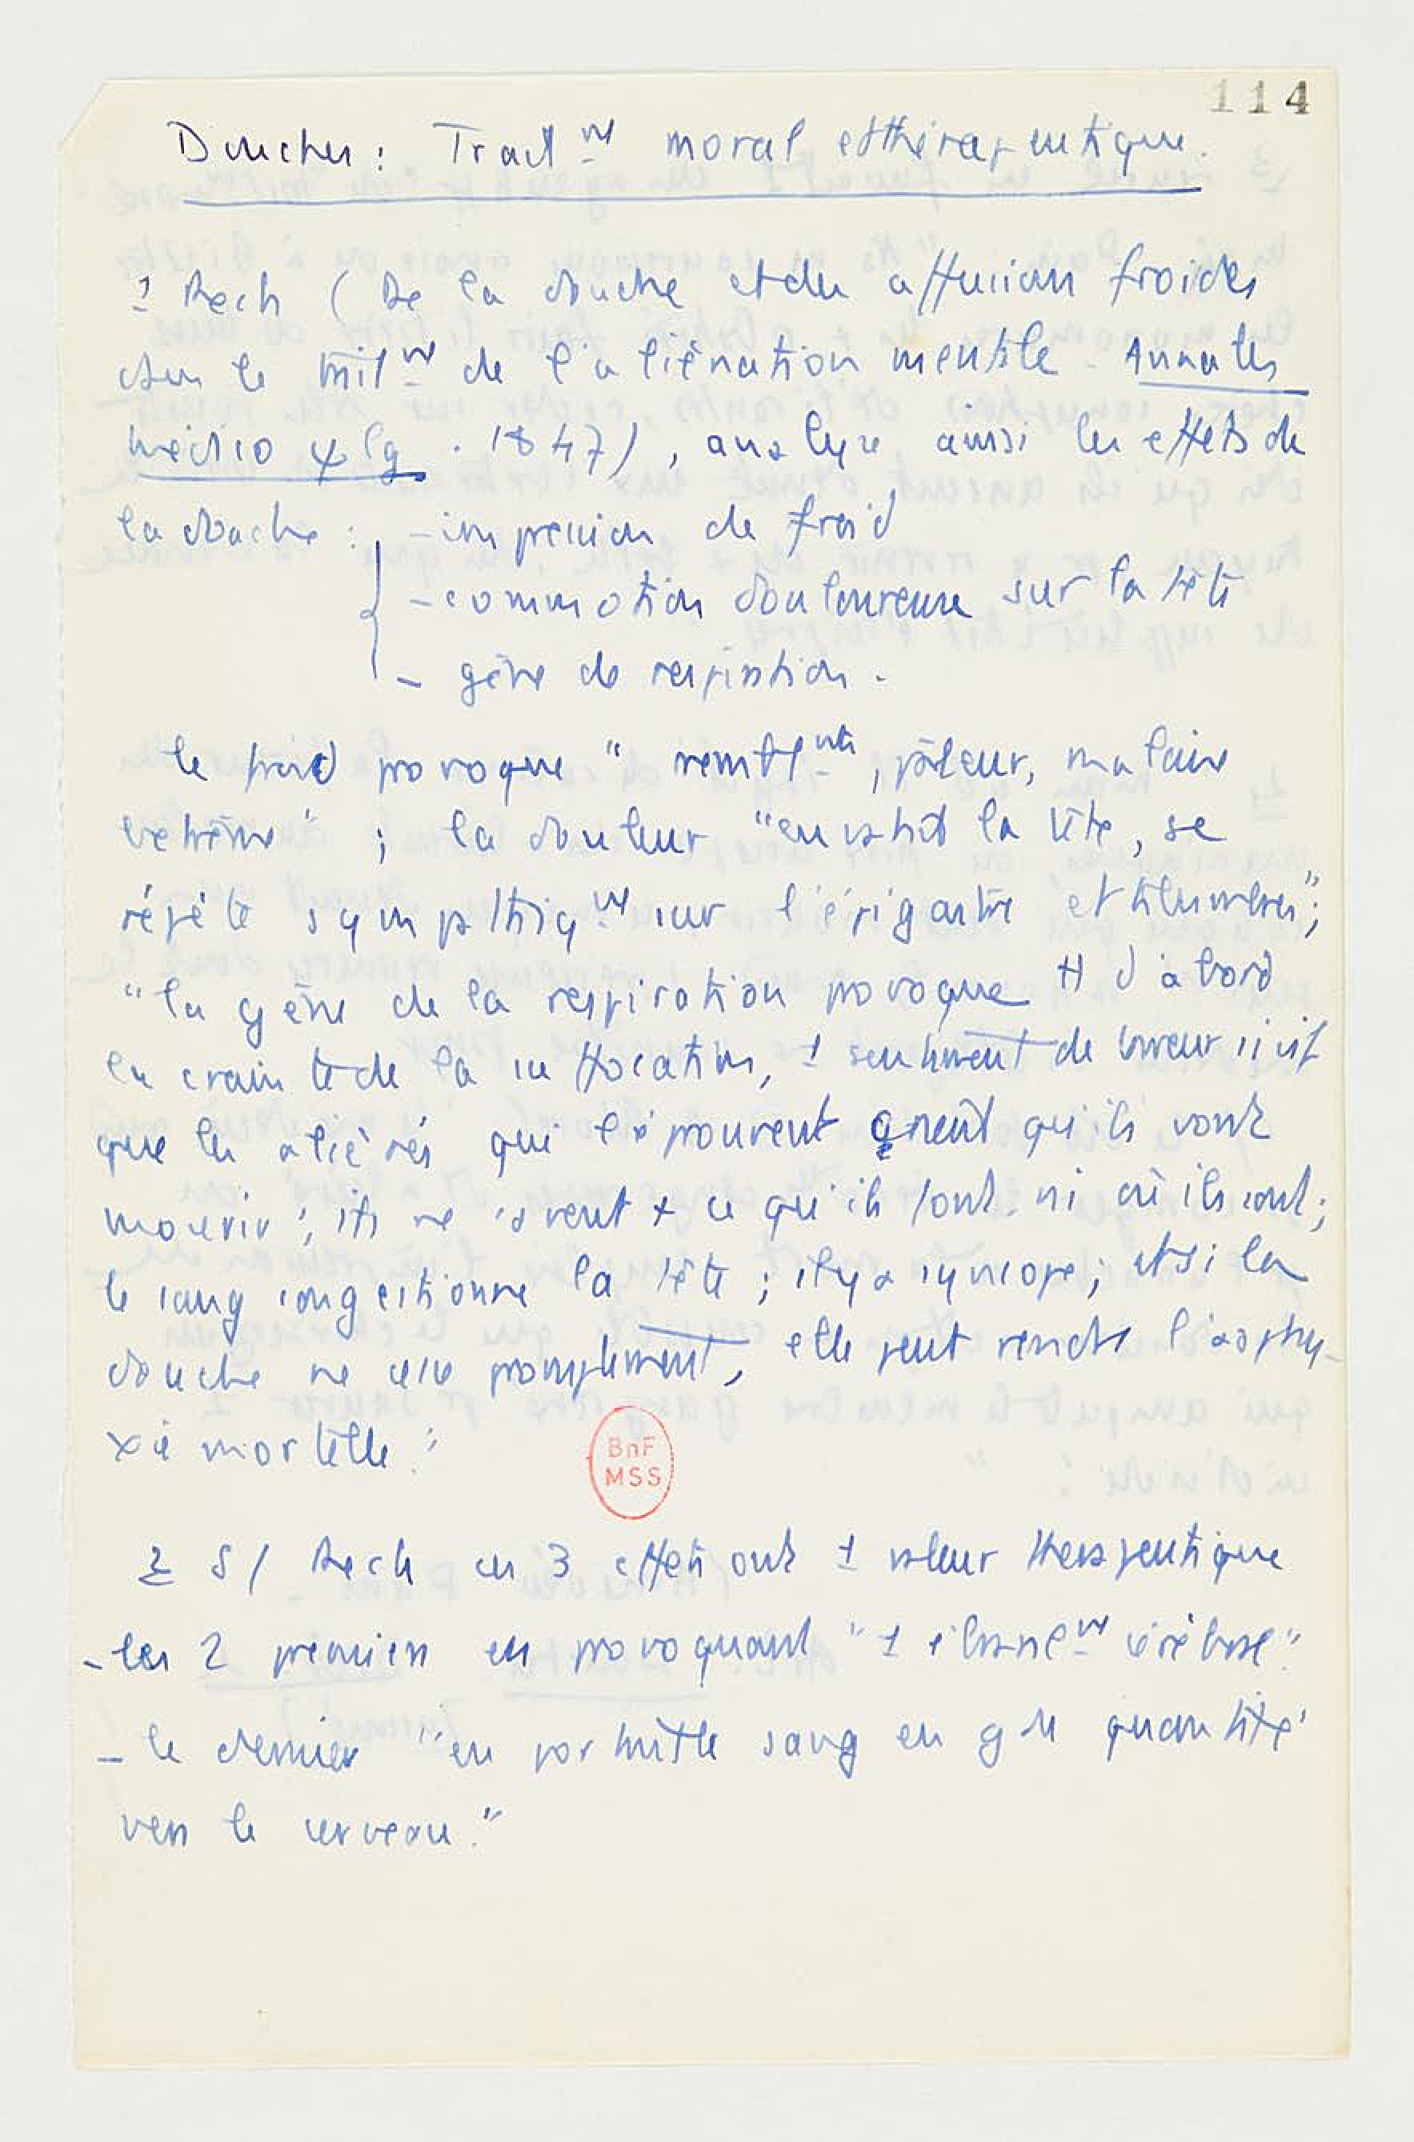 114
Douches : Trait^nt moral et thérapeutique.
1 Rech (De la douche et des affusions froides
dans le trait^nt de l'aliénation mentale. Annales
médico ψlg. 1847), analyse ainsi les effets de
la douche : - impression de froid
- commotion douloureuse sur la tête
- gêne de respiration.
le froid provoque " trembl^nts, pâleur, malaise
extrême" ; la douleur "envahit la tête, se
répète sympathiq^nt sur l'épigastre et les membres";
"la gêne de la respiration provoque tt d'abord
la crainte de la suffocation, 1 sentiment de terreur si vif
que les aliénés qui l'éprouvent croient qu'ils vont
mourir ; ils ne savent + ce qu'ils font ni où ils sont ;
le sang congestionne la tête ; il y a syncope ; et si la
douche ne cesse promptement, elle peut rendre l'asphy-
xie mortelle."
BnF
MSS
2 S/ Rech ces 3 effets ont 1 valeur thérapeutique
- les 2 premiers en provoquant "1 ébranl^nt cérébral"
- le dernier "en portant le sang en gde quantité
vers le cerveau."